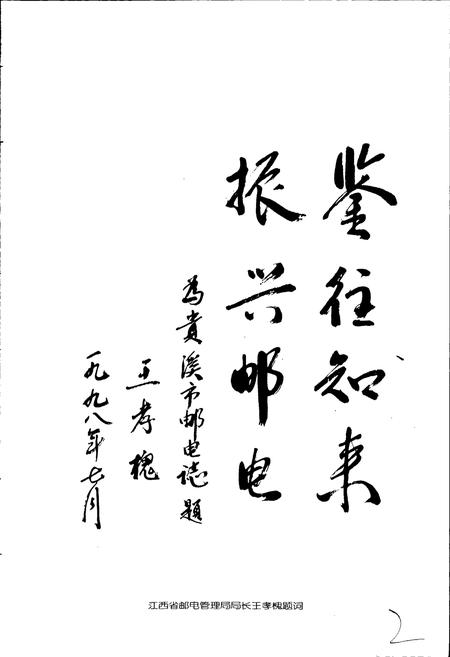 鉴往知来
振兴邮电
為貴溪市邮电誌題
王孝槐
一九九八年七月
江西省邮电管理局局长王孝槐题词
2